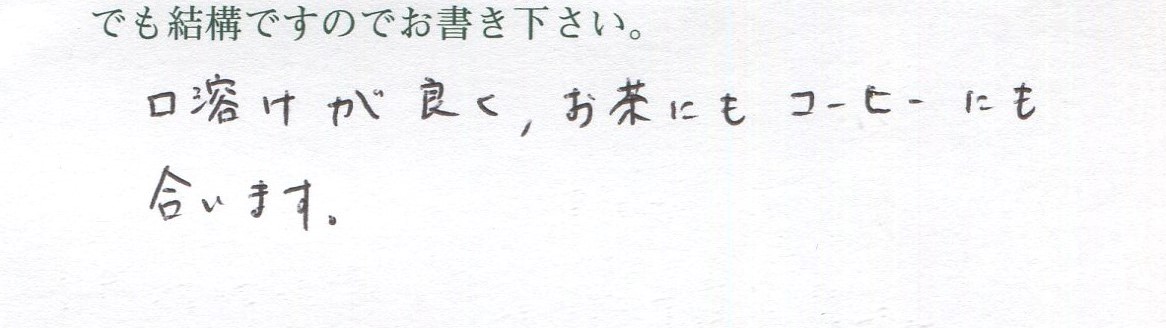 でも結構ですのでお書き下さい。
口溶けが良く,お茶にもコーヒーにも
合います。